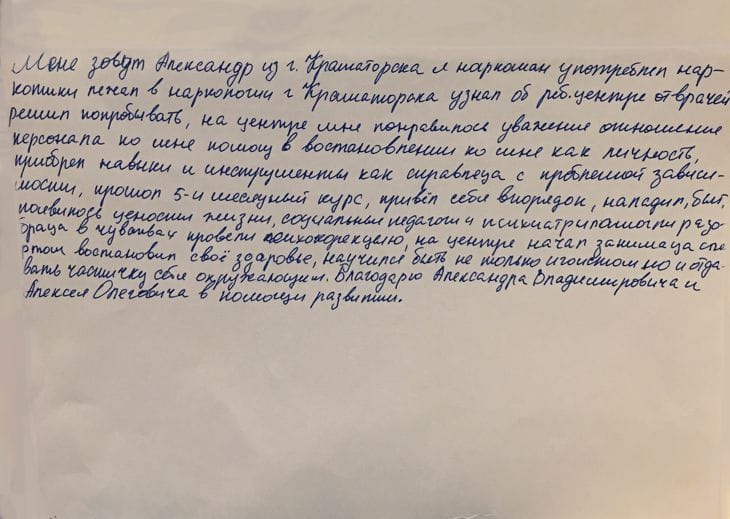 Мене зовут Александр из г. Краматорска я наркоман употреблял нар-
котики лежал в наркологии г Краматорска узнал об реб.центре от врачей
решил попробывать, на центре мне понравилось уважение отношение
персонала ко мне помощ в востановлении ко мне как личность,
приобрел навыки и инструменты как справлеца с проблемой зависи-
мости, прошол 5-и месячный курс, привёл себя впорядок, наладил, быт,
появилось цености жизни, социальные педагоги и психиатр помогли разо-
браца в чувствах провели психокорекцию, на центре начал занимаца спо
ртом востановил своё здоровье, научился быть не только игоистом но и отда-
вать частичку себя окружающим. Благодарю Александра Владимировича и
Алексея Олеговича в помощи развитии.